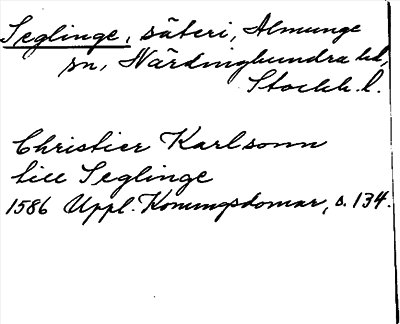 Seglinge, säteri, Almunge
sn, Närdinghundra hd,
Stockh. l.
Christier Karlsonn
till Seglinge
1586 Uppl. Konungsdomar, s. 134.